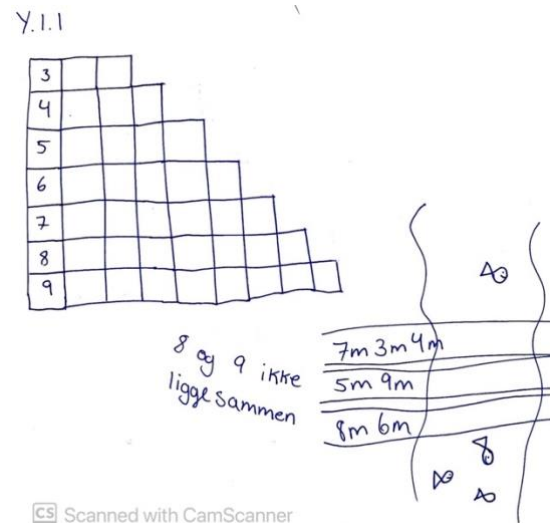 Y.1.1
3
4
5
6
7
8
9
8 og 9 ikke
ligge sammen
7m 3m 4m
5m 9m
8m 6m
CS Scanned with CamScanner